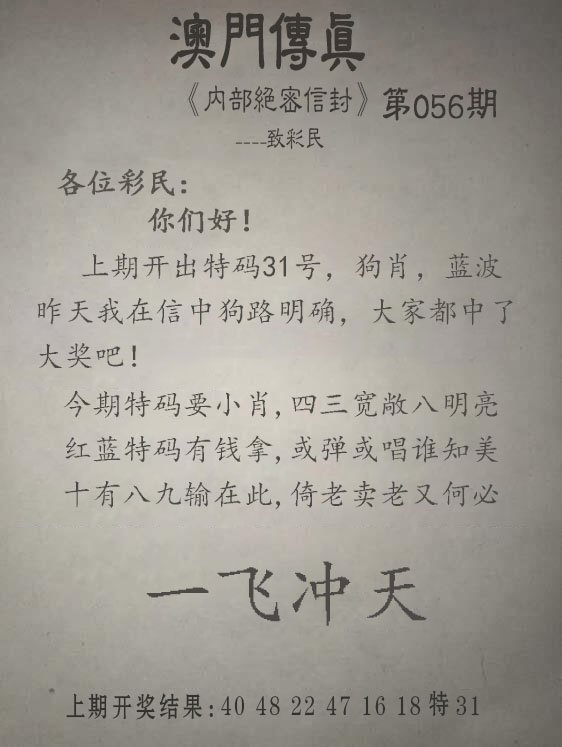 澳門傳眞
《内部絕密信封》第056期
----致彩民
各位彩民：
你们好！
上期开出特码31号，狗肖，蓝波
昨天我在信中狗路明确，大家都中了
大奖吧！
今期特码要小肖,四三宽敞八明亮
红蓝特码有钱拿,或弹或唱谁知美
十有八九输在此,倚老卖老又何必
一飞冲天
上期开奖结果:40 48 22 47 16 18特31